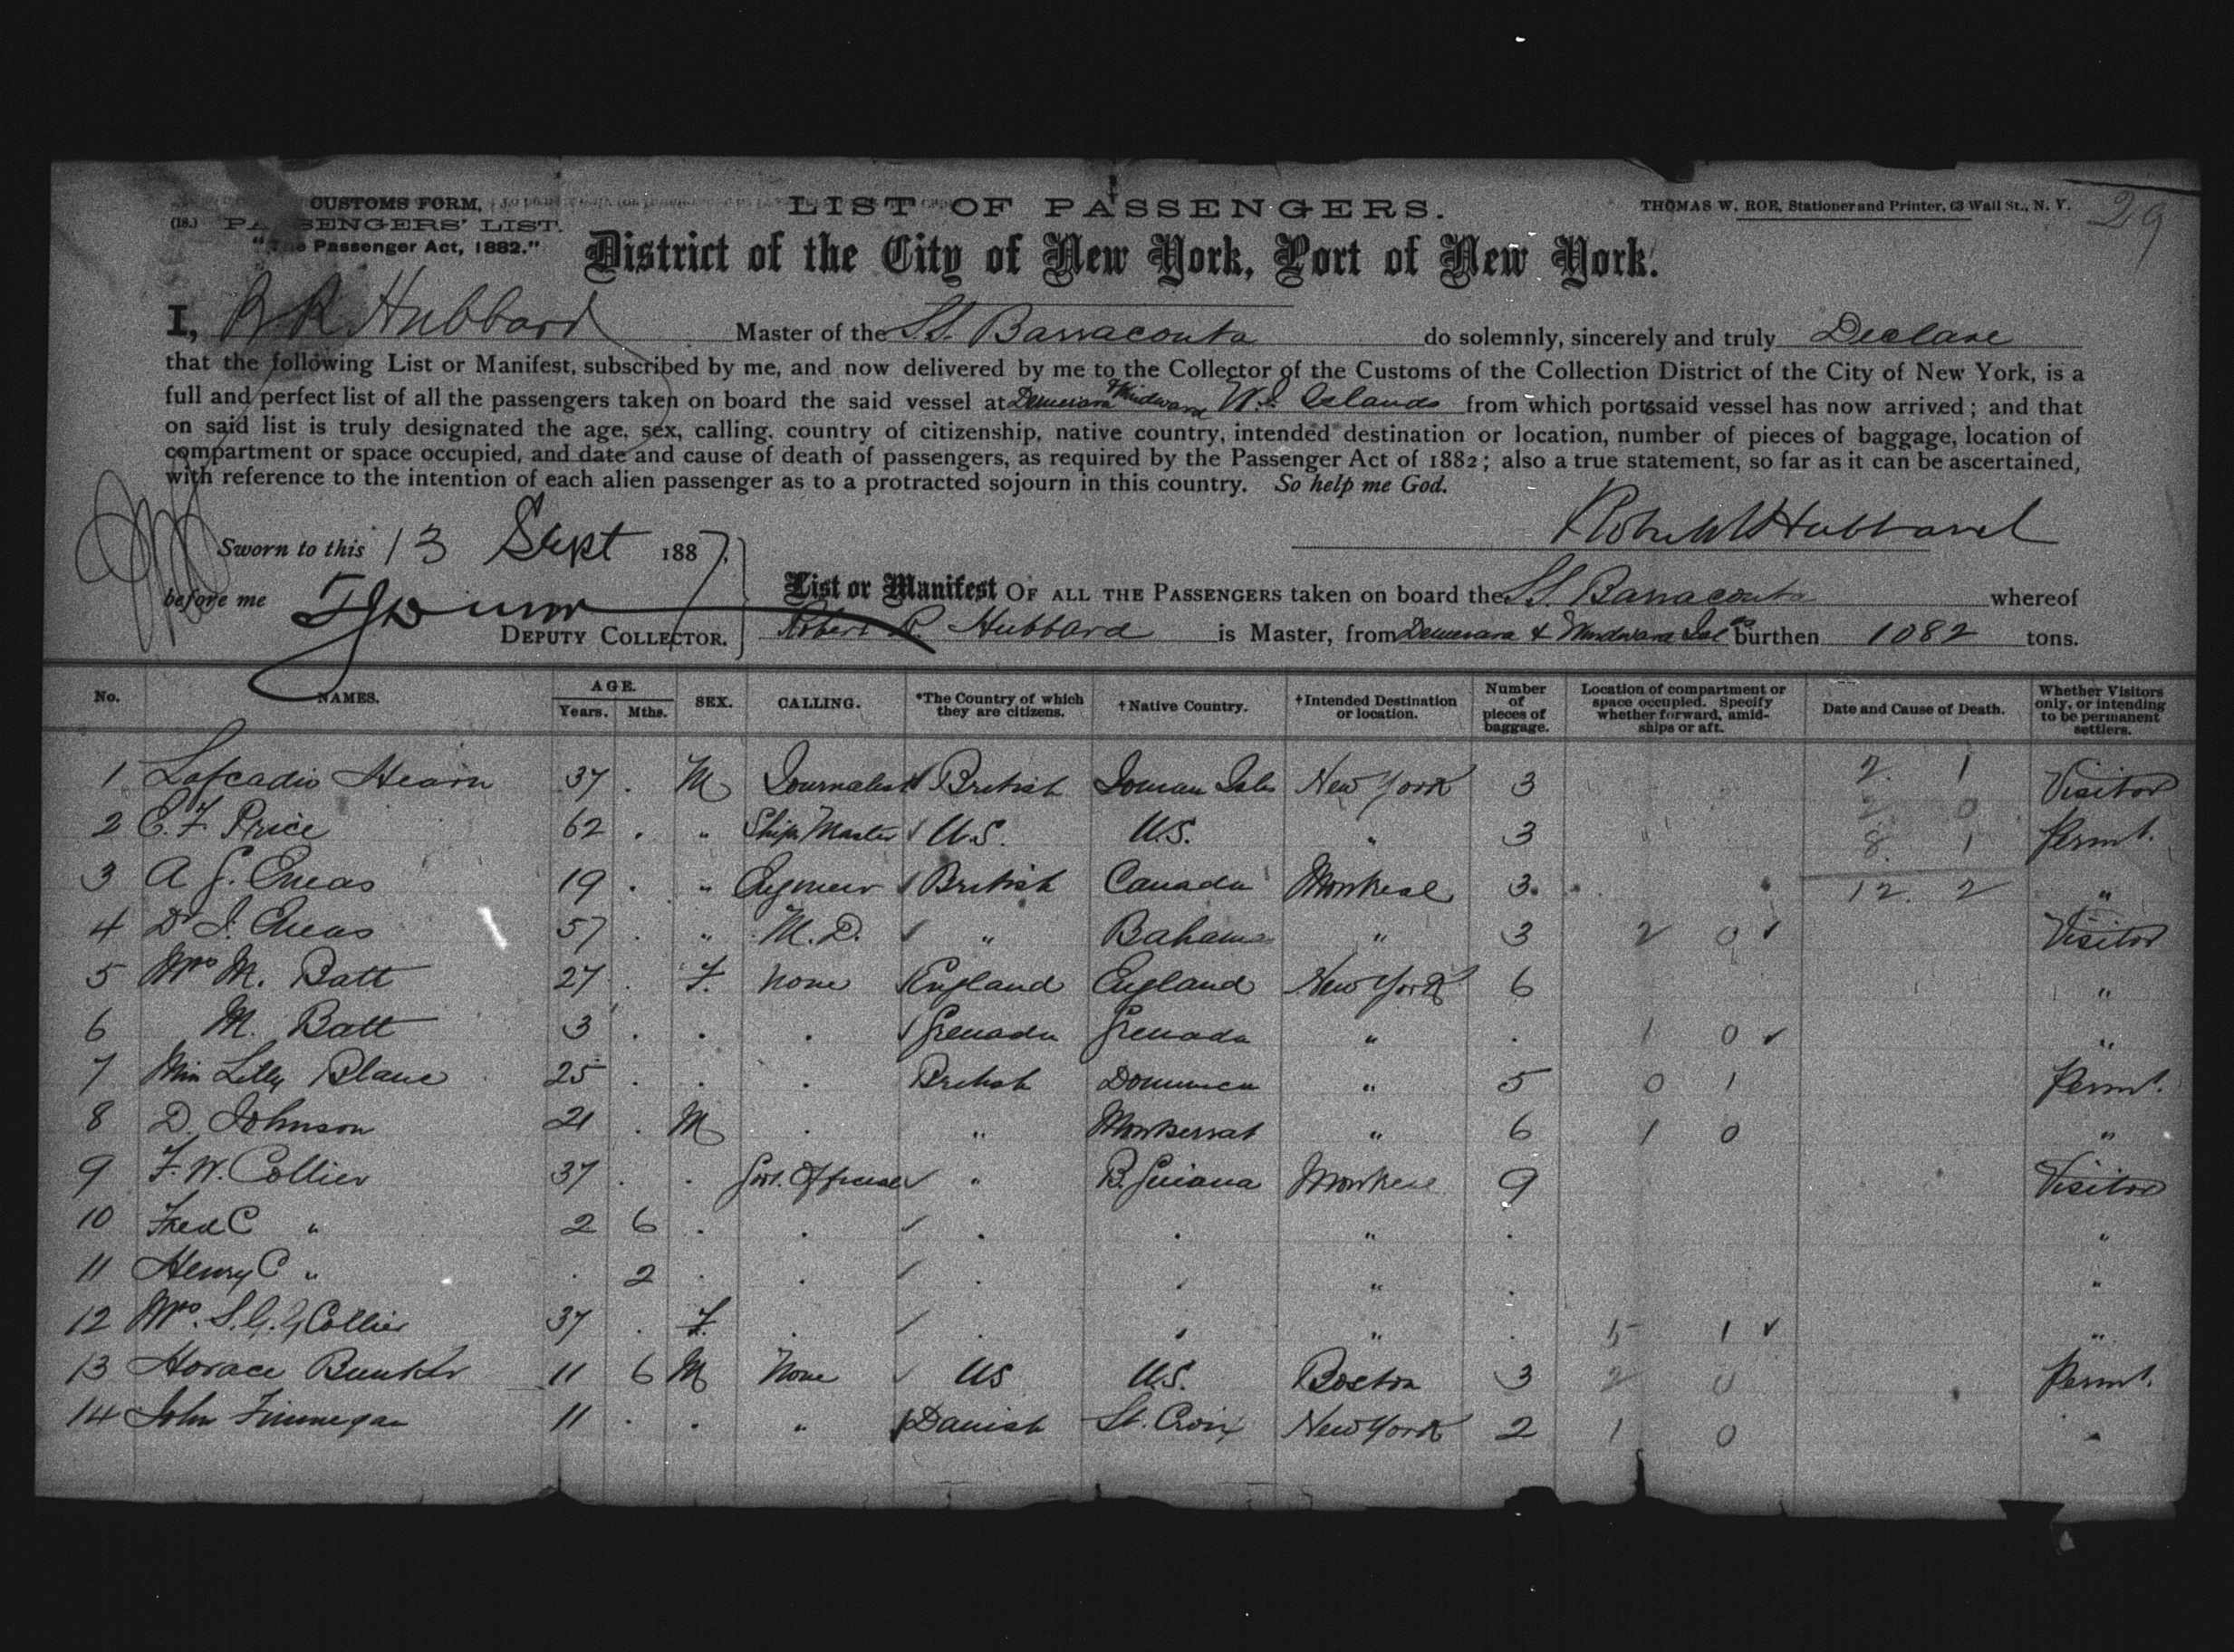 CUSTOMS FORM,
(18.) PASSENGERS' LIST.
"The Passenger Act, 1882."
LIST OF PASSENGERS.
THOMAS W. ROE, Stationer and Printer, 63 Wall St., N. Y.
29
District of the City of New York, Port of New York.
I, R R Hubbard Master of the S.S. Barracouta do solemnly, sincerely and truly Declare
that the following List or Manifest, subscribed by me, and now delivered by me to the Collector of the Customs of the Collection District of the City of New York, is a
full and perfect list of all the passengers taken on board the said vessel at Demerara Windward W.I. Islands from which ports said vessel has now arrived; and that
on said list is truly designated the age, sex, calling, country of citizenship, native country, intended destination or location, number of pieces of baggage, location of
compartment or space occupied, and date and cause of death of passengers, as required by the Passenger Act of 1882; also a true statement, so far as it can be ascertained,
with reference to the intention of each alien passenger as to a protracted sojourn in this country. So help me God.
Robert R Hubbard
Sworn to this 13 Sept 1887,
before me
DEPUTY COLLECTOR.
List or Manifest OF ALL THE PASSENGERS taken on board the S.S. Barracouta whereof
Robert R. Hubbard is Master, from Demerara & Windward Isl ds burthen 1082 tons.
No. NAMES. AGE. Years. Mths. SEX. CALLING. *The Country of which they are citizens. †Native Country. †Intended Destination or location. Number of pieces of baggage. Location of compartment or space occupied. Specify whether forward, amidships or aft. Date and Cause of Death. Whether Visitors only, or intending to be permanent settlers.
1 Lafcadio Hearn 37 . M Journalist ✓ British Ionian Isles New York 3 2. 1 Visitor
2 0
2 E. F. Price 62 . " Ship Master ✓ U.S. U.S. " 3 8. 1 Permt.
3 A G. Eneas 19 . " Engineer ✓ British Canada Montreal 3. 12. 2 "
4 Dr J. Eneas 57 . " M.D. ✓ " Bahamas " 3 2 0 ✓ Visitor
5 Mrs M. Batt 27 . F. None ✓ England England New York 6 "
6 M. Batt 3 . . . ✓ Grenada Grenada " . 1 0 ✓ "
7 Miss Lilly Blanc 25 . . . British Dominica " 5 0 1 Permt.
8 D. Johnson 21 . M . " Montserrat " 6 1 0 "
9 F. W. Collier 37 . . Govt. Official ✓ " B. Guiana Montreal 9 Visitor
10 Fred C " 2 6 . . ✓ . . " . "
11 Henry C " . 2 . . ✓ . . " . "
12 Mrs. S. G. G Collier 37 . F. . ✓ . . " . 5 1 ✓ "
13 Horace Bunker 11 6 M None ✓ US U.S. Boston 3 2 0 Permt.
14 John Finnegan 11 . . " ✓ Danish St. Croix New York 2 1 0 "